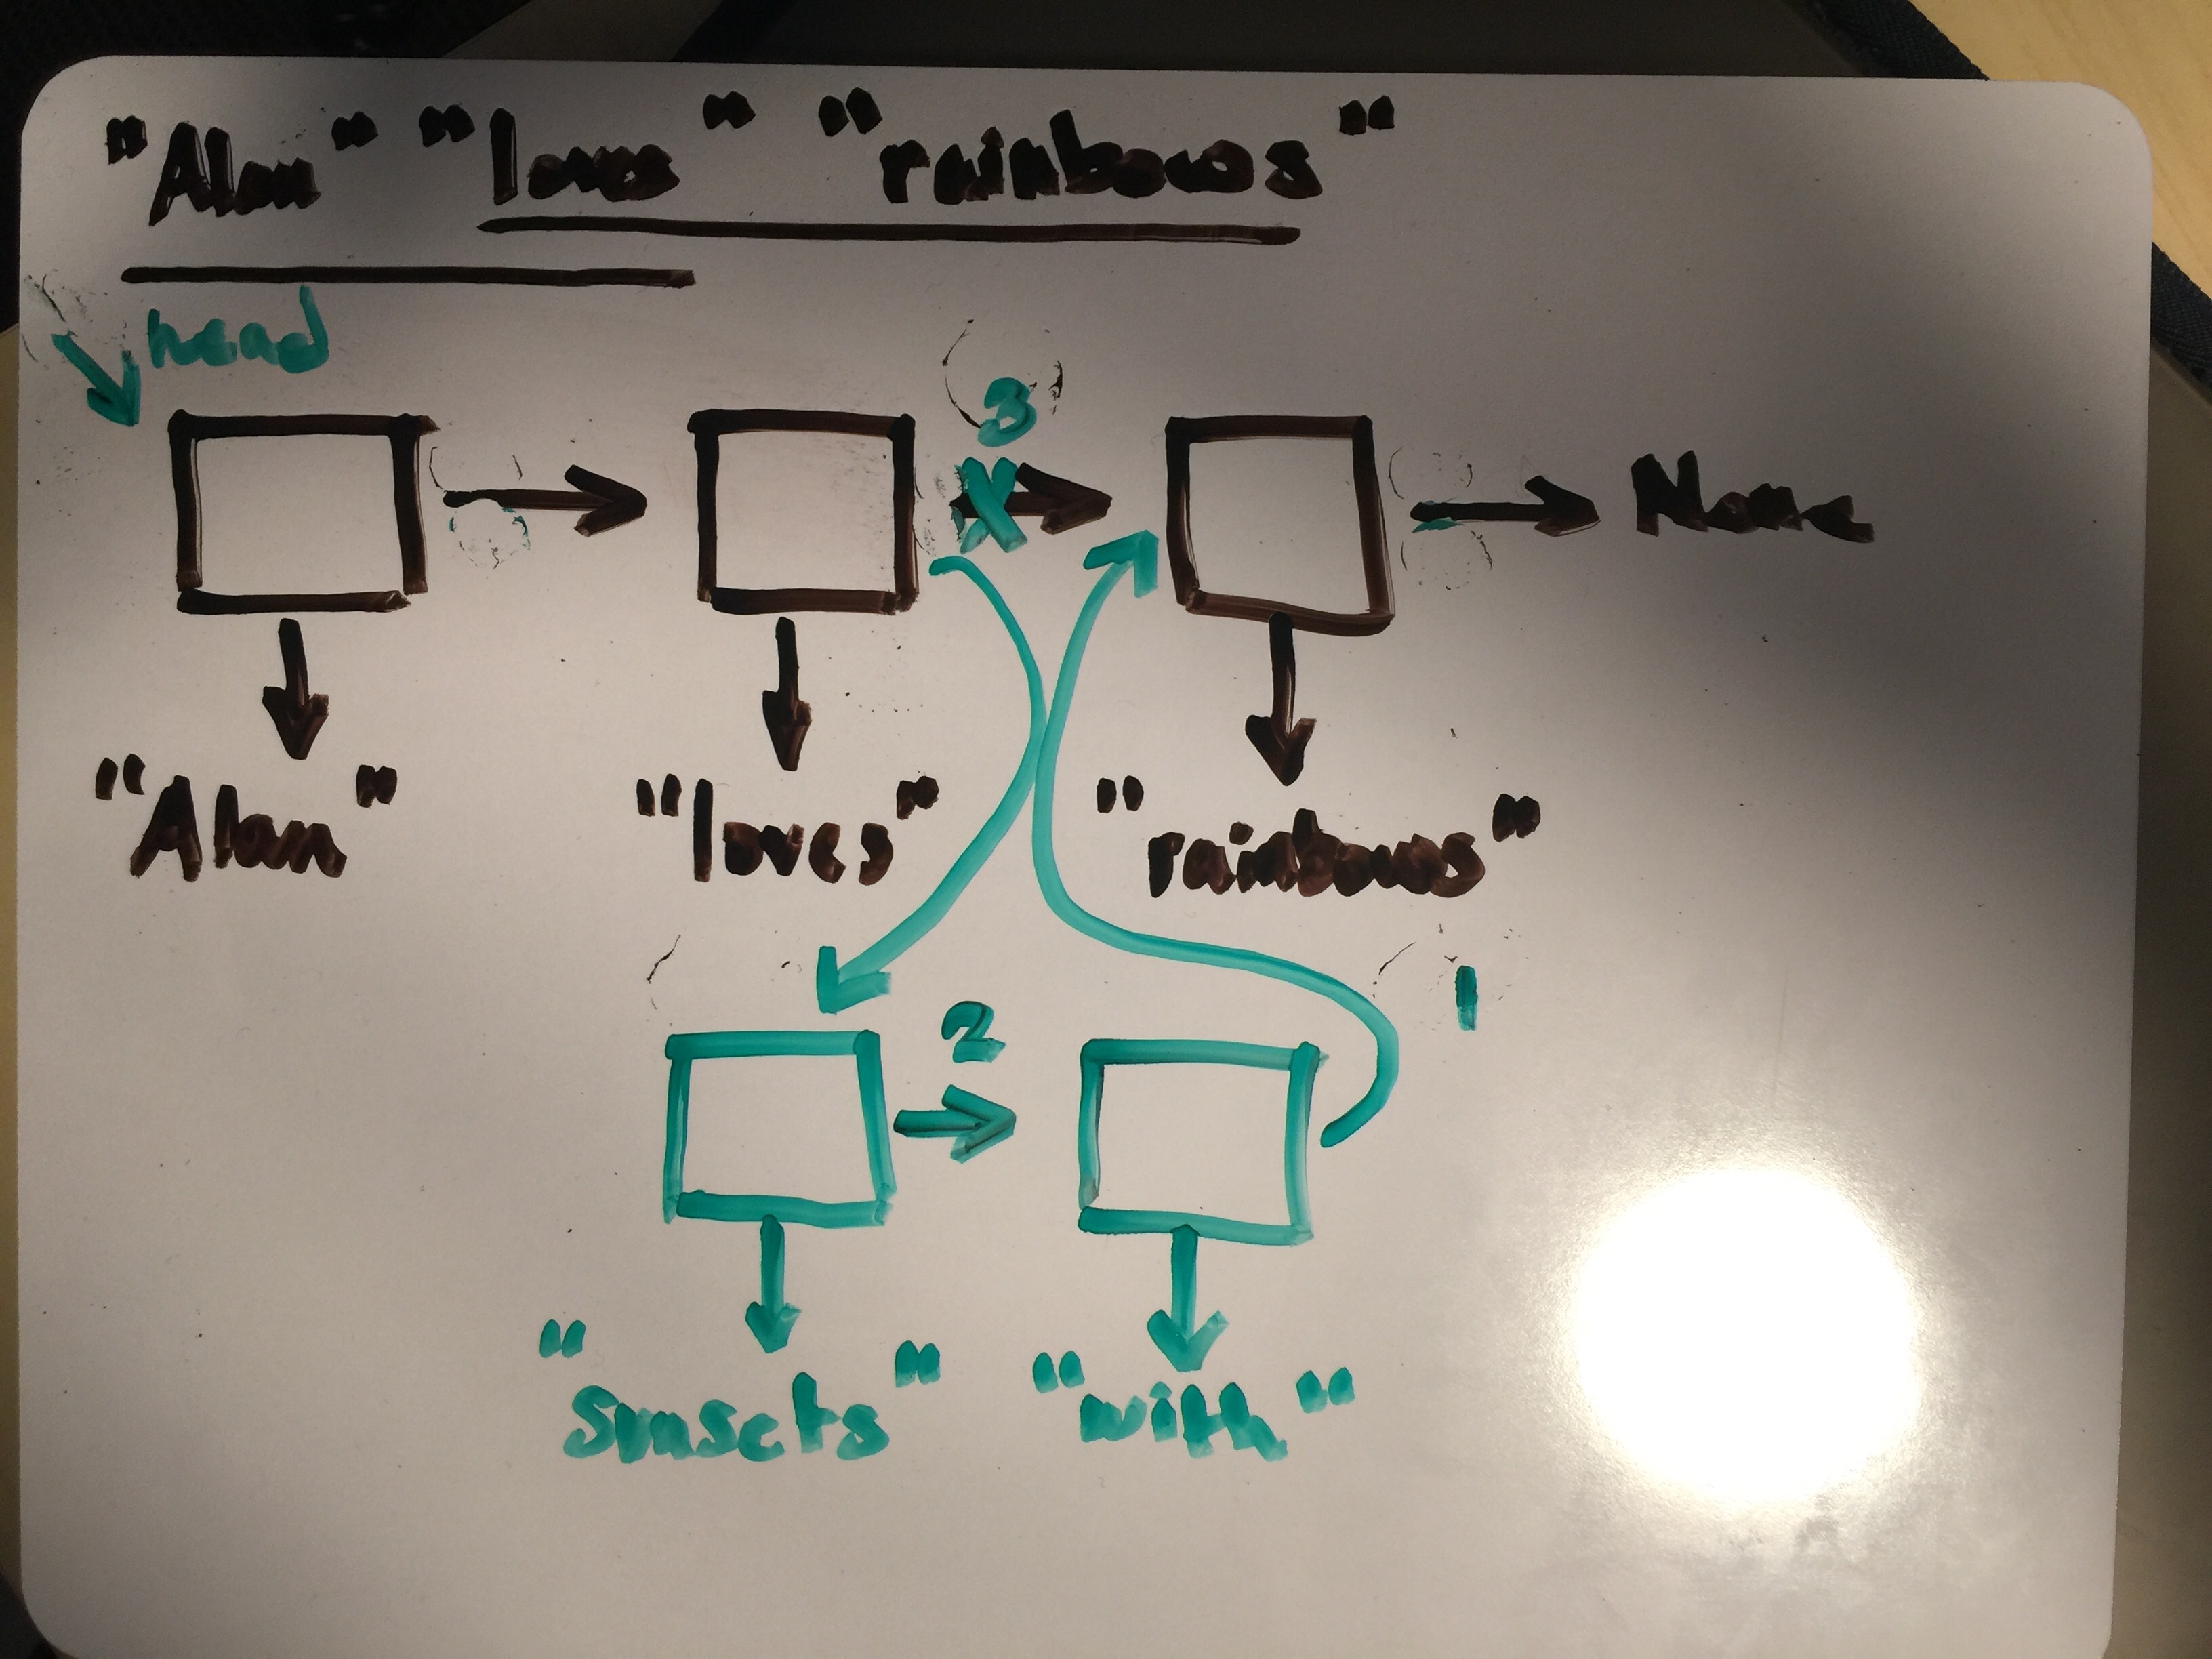 "Alan" "loves" "rainbows"
head
3
None
"Alan" "loves" "rainbows"
1
2
"sunsets" "with"